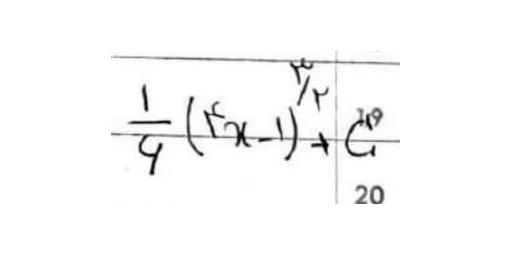 ۱/۶ (۴x-۱)^۳/۲ + C
19
20